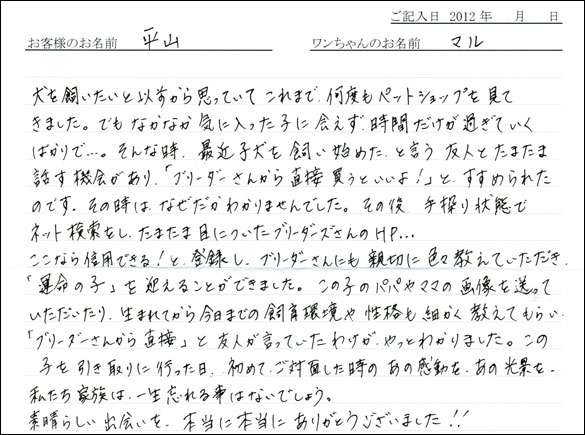 ご記入日 2012 年 月 日
お客様のお名前 平山 ワンちゃんのお名前 マル
犬を飼いたいと以前から思っていて これまで、何度もペットショップを見て
きました。でも なかなか 気に入った子に 会えず、時間だけが過ぎていく
ばかりで…。そんな時、最近子犬を飼い始めた、と言う 友人とたまたま
話す機会があり、「ブリーダーさんから 直接買うといいよ!」と、すすめられた
のです。その時は、なぜだかわかりませんでした。その後、手探り状態で
ネット検索をし、たまたま目についたブリーダーズさんのHP…
ここなら信用できる!と、登録し、ブリーダーさんにも 親切に色々教えていただき、
「運命の子」を迎えることができました。この子のパパやママの画像を送って
いただいたり、生まれてから今日までの飼育環境や性格も細かく教えてもらい、
「ブリーダーさんから直接」と友人が言っていたわけが、やっとわかりました。この
子を引き取りに行った日、初めてご対面した時のあの感動を、あの光景を、
私たち家族は、一生忘れる事はないでしょう。
素晴らしい出会いを、本当に本当にありがとうございました!!